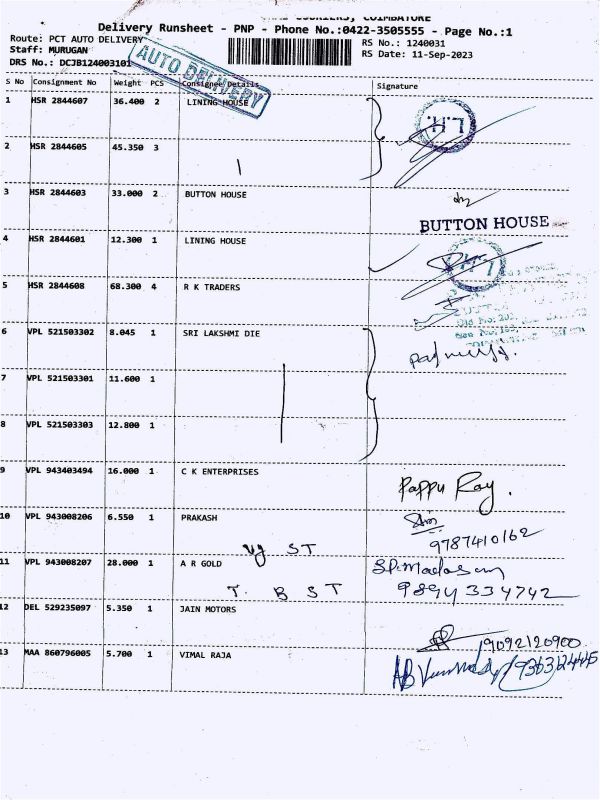 COURIERS, COIMBATORE
Delivery Runsheet - PNP - Phone No.:0422-3505555 - Page No.:1
Route: PCT AUTO DELIVERY RS No.: 1240031
Staff: MURUGAN RS Date: 11-Sep-2023
DRS No.: DCJB124003101
AUTO DELIVERY
S No Consignment No Weight PCS Consignee Details Signature
1 HSR 2844607 36.400 2 LINING HOUSE
L.H.
2 HSR 2844605 45.350 3
3 HSR 2844603 33.000 2 BUTTON HOUSE
BUTTON HOUSE
4 HSR 2844601 12.300 1 LINING HOUSE
5 HSR 2844608 68.300 4 R K TRADERS
6 VPL 521503302 8.045 1 SRI LAKSHMI DIE
7 VPL 521503301 11.600 1
8 VPL 521503303 12.800 1
9 VPL 943403494 16.000 1 C K ENTERPRISES
Pappu Roy.
10 VPL 943008206 6.550 1 PRAKASH
ST 9787410162
11 VPL 943008207 28.000 1 A R GOLD
T. B ST 9894334742
12 DEL 529235097 5.350 1 JAIN MOTORS
9092120900
13 MAA 860796005 5.700 1 VIMAL RAJA